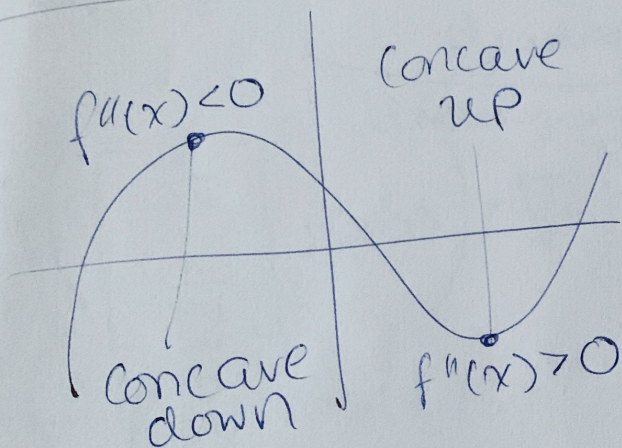 f"(x) <0
concave
up
concave
down
f"(x) > 0